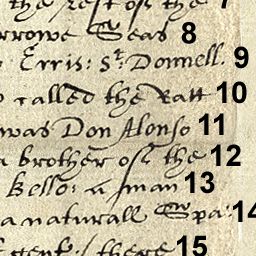 the rest of the 7
rrowe Seas 8
Erris: St. Donnell: 9
called the Ratt 10
was Don Alonso 11
a brother of the 12
Bello: a man 13
a naturall Spa: 14
gent: / there 15